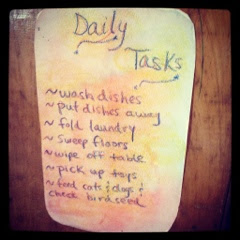 Daily
Tasks
~wash dishes
~put dishes away
~fold laundry
~sweep floors
~wipe off table
~pick up toys
~feed cats & dogs &
check birdseed